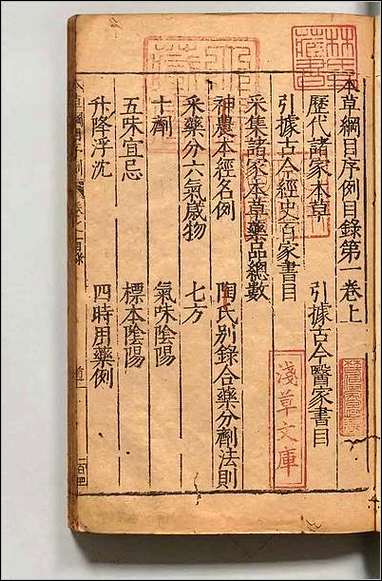 本草綱目序例目錄第一卷上
歷代諸家本草　引據古今醫家書目
引據古今經史百家書目
采集諸家本草藥品總數
神農本經名例　陶氏別錄合藥分劑法則
采藥分六氣歲物　七方
十劑　氣味陰陽
五味宜忌　標本陰陽
升降浮沈　四時用藥例
淺草文庫
林氏藏書